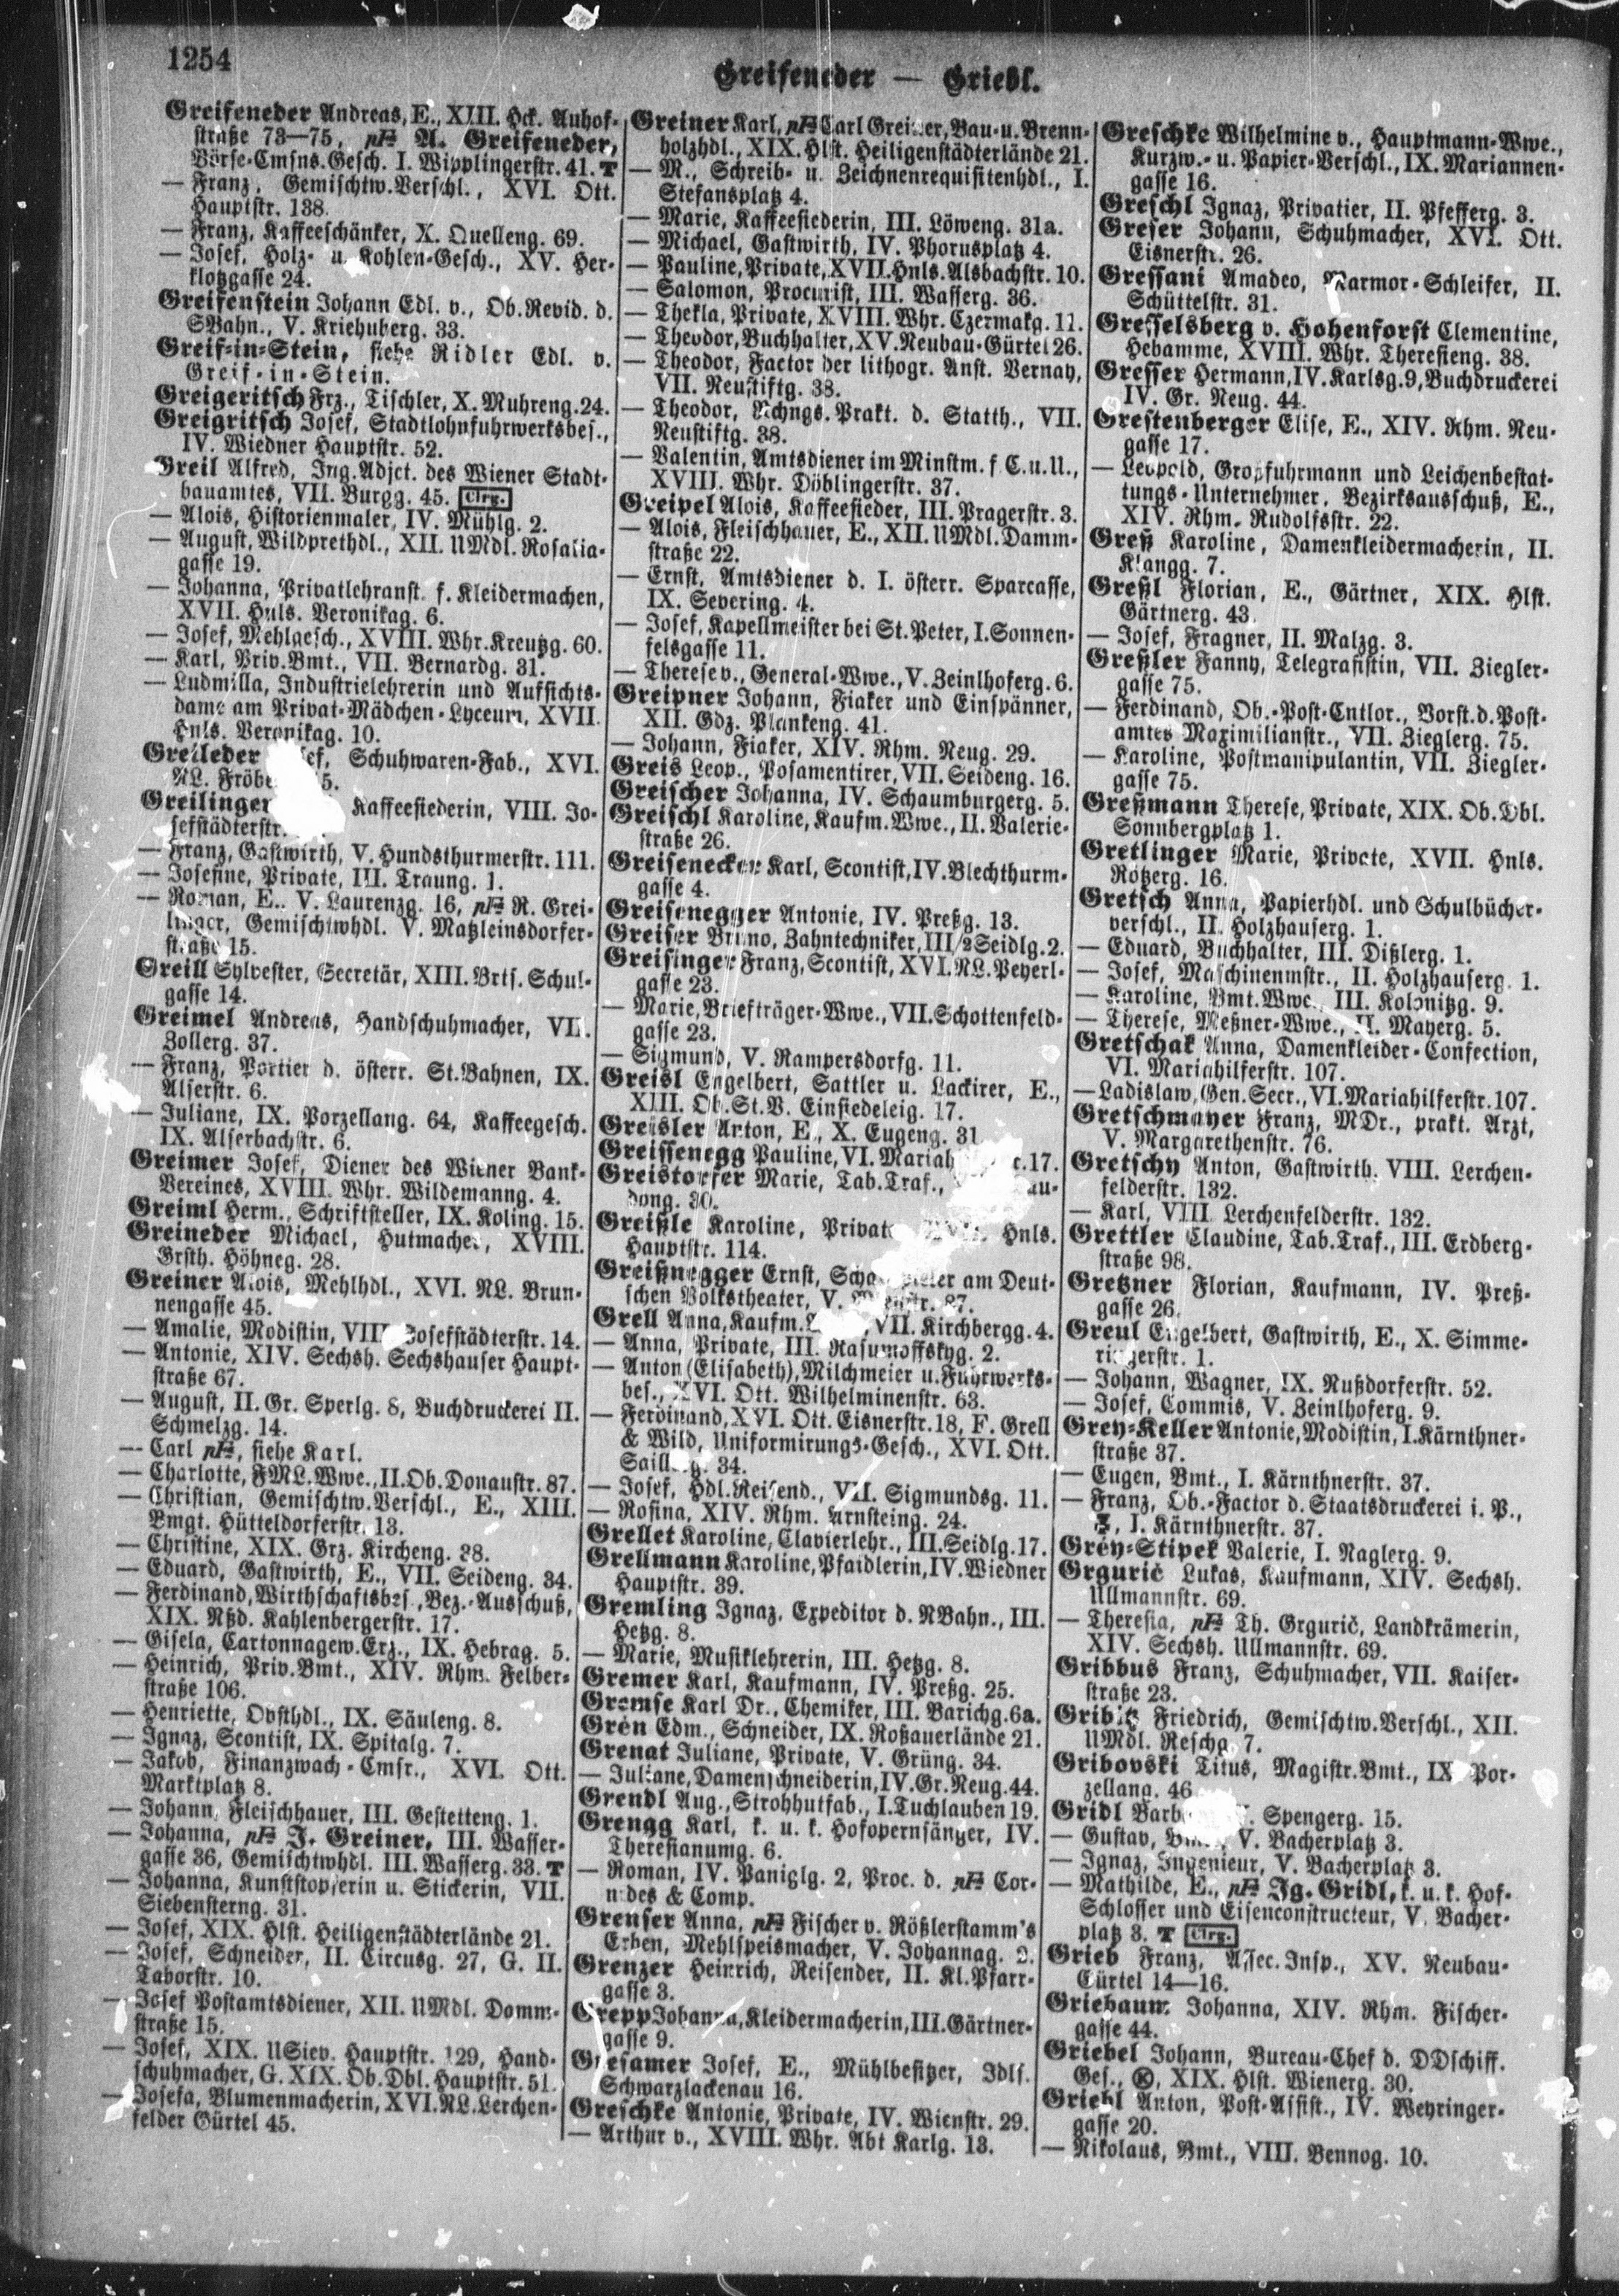 1254
Greifeneder — Griebl.
Greifeneder Andreas, E., XIII. Hck. Auhof-
straße 73—75, pF A. Greifeneder,
Börse-Cmsns.Gesch. I. Wipplingerstr. 41. T
— Franz, Gemischtw.Verschl., XVI. Ott.
Hauptstr. 138.
— Franz, Kaffeeschänker, X. Quelleng. 69.
— Josef, Holz- u. Kohlen-Gesch., XV. Her-
klotzgasse 24.
Greifenstein Johann Edl. v., Ob.Revid. d.
SBahn., V. Kriehuberg. 33.
Greif-in-Stein, siehe Ridler Edl. v.
Greif-in-Stein.
Greigeritsch Frz., Tischler, X. Muhreng. 24.
Greigritsch Josef, Stadtlohnfuhrwerksbes.,
IV. Wiedner Hauptstr. 52.
Greil Alfred, Ing.Adjct. des Wiener Stadt-
bauamtes, VII. Burgg. 45. Clrg.
— Alois, Historienmaler, IV. Mühlg. 2.
— August, Wildprethdl., XII. UMdl. Rosalia-
gasse 19.
— Johanna, Privatlehranst. f. Kleidermachen,
XVII. Hnls. Veronikag. 6.
— Josef, Mehlgesch., XVIII. Whr. Kreutzg. 60.
— Karl, Priv.Bmt., VII. Bernardg. 31.
— Ludmilla, Industrielehrerin und Aufsichts-
dame am Privat-Mädchen-Lyceum, XVII.
Hnls. Veronikag. 10.
Greileder Schuhwaren-Fab., XVI.
NL.
Greilinger Kaffeesiederin, VIII. Jo-
sefstädterstr.
— Franz, Gastwirth, V. Hundsthurmerstr. 111.
— Josefine, Private, III. Traung. 1.
— Roman, E., V. Laurenzg. 16, pF R. Grei-
linger, Gemischtwhdl. V. Matzleinsdorfer-
straße 15.
Greill Sylvester, Secretär, XIII. Brts. Schul-
gasse 14.
Greimel Andreas, Handschuhmacher, VII.
Zollerg. 37.
— Franz, Portier d. österr. St.Bahnen, IX.
Alserstr. 6.
— Juliane, IX. Porzellang. 64, Kaffeegesch.
IX. Alserbachstr. 6.
Greimer Josef, Diener des Wiener Bank-
Vereines, XVIII. Whr. Wildemanng. 4.
Greiml Herm., Schriftsteller, IX. Koling. 15.
Greineder Michael, Hutmacher, XVIII.
Grsth. Höhneg. 28.
Greiner Alois, Mehlhdl., XVI. NL. Brun-
nengasse 45.
— Amalie, Modistin, VIII. Josefstädterstr. 14.
— Antonie, XIV. Sechsh. Sechshauser Haupt-
straße 67.
— August, II. Gr. Sperlg. 8, Buchdruckerei II.
Schmelzg. 14.
— Carl pF, siehe Karl.
— Charlotte, FML.Wwe., II. Ob. Donaustr. 87.
— Christian, Gemischtw.Verschl., E., XIII.
Bmgt. Hütteldorferstr. 13.
— Christine, XIX. Grz. Kircheng. 38.
— Eduard, Gastwirth, E., VII. Seideng. 34.
— Ferdinand, Wirthschaftsbes., Bez.-Ausschuß,
XIX. Nßd. Kahlenbergerstr. 17.
— Gisela, Cartonnagew.Erz., IX. Hebrag. 5.
— Heinrich, Priv.Bmt., XIV. Rhm. Felber-
straße 106.
— Henriette, Obsthdl., IX. Säuleng. 8.
— Ignaz, Scontist, IX. Spitalg. 7.
— Jakob, Finanzwach-Cmsr., XVI. Ott.
Marktplatz 8.
— Johann, Fleischhauer, III. Gestetteng. 1.
— Johanna, pF J. Greiner, III. Wasser-
gasse 36, Gemischtwhdl. III. Wasserg. 33. T
— Johanna, Kunststopferin u. Stickerin, VII.
Siebensterng. 31.
— Josef, XIX. Hlst. Heiligenstädterlände 21.
— Josef, Schneider, II. Circusg. 27, G. II.
Taborstr. 10.
— Josef Postamtsdiener, XII. UMdl. Damm-
straße 15.
— Josef, XIX. USiev. Hauptstr. 129, Hand-
schuhmacher, G. XIX. Ob. Dbl. Hauptstr. 51.
— Josefa, Blumenmacherin, XVI. NL. Lerchen-
felder Gürtel 45.
Greiner Karl, pF Carl Greiner, Bau- u. Brenn-
holzhdl., XIX. Hlst. Heiligenstädterlände 21.
— M., Schreib- u. Zeichnenrequisitenhdl., I.
Stefansplatz 4.
— Marie, Kaffeesiederin, III. Löweng. 31a.
— Michael, Gastwirth, IV. Phorusplatz 4.
— Pauline, Private, XVII. Hnls. Alsbachstr. 10.
— Salomon, Procurist, III. Wasserg. 36.
— Thekla, Private, XVIII. Whr. Czermakg. 11.
— Theodor, Buchhalter, XV. Neubau-Gürtel 26.
— Theodor, Factor der lithogr. Anst. Vernay,
VII. Neustiftg. 38.
— Theodor, Rchngs.Prakt. d. Statth., VII.
Neustiftg. 38.
— Valentin, Amtsdiener im Minstm. f. C. u. U.,
XVIII. Whr. Döblingerstr. 37.
Greipel Alois, Kaffeesieder, III. Pragerstr. 3.
— Alois, Fleischhauer, E., XII. UMdl. Damm-
straße 22.
— Ernst, Amtsdiener d. I. österr. Sparcasse,
IX. Severing. 4.
— Josef, Kapellmeister bei St. Peter, I. Sonnen-
felsgasse 11.
— Therese v., General-Wwe., V. Zeinlhoferg. 6.
Greipner Johann, Fiaker und Einspänner,
XII. Gdz. Plankeng. 41.
— Johann, Fiaker, XIV. Rhm. Neug. 29.
Greis Leop., Posamentirer, VII. Seideng. 16.
Greischer Johanna, IV. Schaumburgerg. 5.
Greischl Karoline, Kaufm.Wwe., II. Valerie-
straße 26.
Greisenecker Karl, Scontist, IV. Blechthurm-
gasse 4.
Greisenegger Antonie, IV. Preßg. 13.
Greiser Bruno, Zahntechniker, III/2 Seidlg. 2.
Greisinger Franz, Scontist, XVI. NL. Peyerl-
gasse 23.
— Marie, Briefträger-Wwe., VII. Schottenfeld-
gasse 23.
— Sigmund, V. Rampersdorfg. 11.
Greisl Engelbert, Sattler u. Lackirer, E.,
XIII. Ob. St. V. Einsiedeleig. 17.
Greisler Anton, E., X. Eugeng. 31.
Greissenegg Pauline, VI. 17.
Greistorfer Marie, Tab.Traf.,
dong. 30.
Greißle Karoline, Private, Hnls.
Hauptstr. 114.
Greißnegger Ernst, Schauspieler am Deut-
schen Volkstheater, V. 87.
Grell Anna, Kaufm. VII. Kirchbergg. 4.
— Anna, Private, III. Rasumoffskyg. 2.
— Anton (Elisabeth), Milchmeier u. Fuhrwerks-
bes., XVI. Ott. Wilhelminenstr. 63.
— Ferdinand, XVI. Ott. Eisnerstr. 18, F. Grell
& Wild, Uniformirungs-Gesch., XVI. Ott.
34.
— Josef, Hdl.Reisend., VII. Sigmundsg. 11.
— Rosina, XIV. Rhm. Arnsteing. 24.
Grellet Karoline, Clavierlehr., III. Seidlg. 17.
Grellmann Karoline, Pfaidlerin, IV. Wiedner
Hauptstr. 39.
Gremling Ignaz, Expeditor d. NBahn., III.
Hetzg. 8.
— Marie, Musiklehrerin, III. Hetzg. 8.
Gremer Karl, Kaufmann, IV. Preßg. 25.
Gremse Karl Dr., Chemiker, III. Barichg. 6a.
Grén Edm., Schneider, IX. Roßauerlände 21.
Grenat Juliane, Private, V. Grüng. 34.
— Juliane, Damenschneiderin, IV. Gr. Neug. 44.
Grendl Aug., Strohhutfab., I. Tuchlauben 19.
Grengg Karl, k. u. k. Hofopernsänger, IV.
Theresianumg. 6.
— Roman, IV. Paniglg. 2, Proc. d. pF Cor-
nides & Comp.
Grenser Anna, pF Fischer v. Rößlerstamm's
Erben, Mehlspeismacher, V. Johannag. 2.
Grenzer Heinrich, Reisender, II. Kl. Pfarr-
gasse 3.
Grepp Johanna, Kleidermacherin, III. Gärtner-
gasse 9.
Gresamer Josef, E., Mühlbesitzer, Jdls.
Schwarzlackenau 16.
Greschke Antonie, Private, IV. Wienstr. 29.
— Arthur v., XVIII. Whr. Abt Karlg. 13.
Greschke Wilhelmine v., Hauptmann-Wwe.,
Kurzw.- u. Papier-Verschl., IX. Mariannen-
gasse 16.
Greschl Ignaz, Privatier, II. Pfefferg. 3.
Greser Johann, Schuhmacher, XVI. Ott.
Eisnerstr. 26.
Gressani Amadeo, Marmor-Schleifer, II.
Schüttelstr. 31.
Gresselsberg v. Hohenforst Clementine,
Hebamme, XVIII. Whr. Theresieng. 38.
Gresser Hermann, IV. Karlsg. 9, Buchdruckerei
IV. Gr. Neug. 44.
Grestenberger Elise, E., XIV. Rhm. Neu-
gasse 17.
— Leopold, Großfuhrmann und Leichenbestat-
tungs-Unternehmer, Bezirksausschuß, E.,
XIV. Rhm. Rudolfsstr. 22.
Greß Karoline, Damenkleidermacherin, II.
Klangg. 7.
Greßl Florian, E., Gärtner, XIX. Hlst.
Gärtnerg. 43.
— Josef, Fragner, II. Malzg. 3.
Greßler Fanny, Telegrafistin, VII. Ziegler-
gasse 75.
— Ferdinand, Ob.-Post-Cntlor., Vorst. d. Post-
amtes Maximilianstr., VII. Zieglerg. 75.
— Karoline, Postmanipulantin, VII. Ziegler-
gasse 75.
Greßmann Therese, Private, XIX. Ob. Dbl.
Sonnbergplatz 1.
Gretlinger Marie, Private, XVII. Hnls.
Rötzerg. 16.
Gretsch Anna, Papierhdl. und Schulbücher-
verschl., II. Holzhauserg. 1.
— Eduard, Buchhalter, III. Dißlerg. 1.
— Josef, Maschinenmstr., II. Holzhauserg. 1.
— Karoline, Bmt.Wwe., III. Kolonitzg. 9.
— Therese, Meßner-Wwe., II. Mayerg. 5.
Gretschak Anna, Damenkleider-Confection,
VI. Mariahilferstr. 107.
— Ladislaw, Gen.Secr., VI. Mariahilferstr. 107.
Gretschmayer Franz, MDr., prakt. Arzt,
V. Margarethenstr. 76.
Gretschy Anton, Gastwirth. VIII. Lerchen-
felderstr. 132.
— Karl, VIII. Lerchenfelderstr. 132.
Grettler Claudine, Tab.Traf., III. Erdberg-
straße 98.
Gretzner Florian, Kaufmann, IV. Preß-
gasse 26.
Greul Engelbert, Gastwirth, E., X. Simme-
ringerstr. 1.
— Johann, Wagner, IX. Nußdorferstr. 52.
— Josef, Commis, V. Zeinlhoferg. 9.
Grey-Keller Antonie, Modistin, I. Kärnthner-
straße 37.
— Eugen, Bmt., I. Kärnthnerstr. 37.
— Franz, Ob.-Factor d. Staatsdruckerei i. P.,
I. Kärnthnerstr. 37.
Grey-Stipek Valerie, I. Naglerg. 9.
Grgurić Lukas, Kaufmann, XIV. Sechsh.
Ullmannstr. 69.
— Theresia, pF Th. Grgurić, Landkrämerin,
XIV. Sechsh. Ullmannstr. 69.
Gribbus Franz, Schuhmacher, VII. Kaiser-
straße 23.
Gribitz Friedrich, Gemischtw.Verschl., XII.
UMdl. Reschg. 7.
Gribovski Titus, Magistr.Bmt., IX. Por-
zellang. 46.
Gridl Spengerg. 15.
— Gustav, V. Bacherplatz 3.
— Ignaz, Ingenieur, V. Bacherplatz 3.
— Mathilde, E., pF Ig. Gridl, k. u. k. Hof-
Schlosser und Eisenconstructeur, V. Bacher-
platz 3. T Clrg.
Grieb Franz, Assec.Insp., XV. Neubau-
Gürtel 14—16.
Griebaum Johanna, XIV. Rhm. Fischer-
gasse 44.
Griebel Johann, Bureau-Chef d. DDschiff.
Ges., XIX. Hlst. Wienerg. 30.
Griebl Anton, Post-Assist., IV. Weyringer-
gasse 20.
— Nikolaus, Bmt., VIII. Bennog. 10.